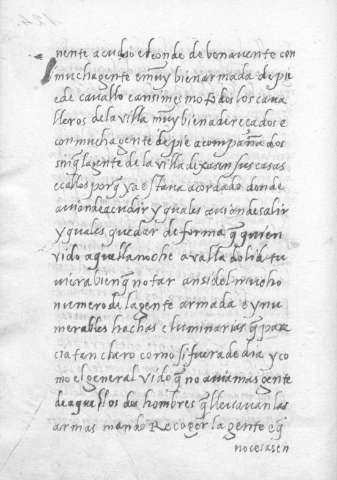 nente acudio el conde de benavente con
mucha gente e muy bien armada de pie
e de cavallo e ansi mesmo todos los cava
lleros de la villa muy bien adereçados e
con mucha gente de pie acompañados
sin q̃ la gente de la villa dexasen sus casas
e calles porq̃ ya estava acordado donde
avian de acudir y quales avian de salir
y quales quedar de forma q̃ quien
vido aquella noche a valladolid tu
viera bien q̃ notar ansi del mucho
numero de la gente armada e ynu
merables hachas e luminarias q̃ pare
cia tan claro como si fuera de dia y co
mo el general vido q̃ no avia mas gente
de aquellos dos hombres q̃ llevavan las
armas mando Recoger la gente e q̃
no cesasen